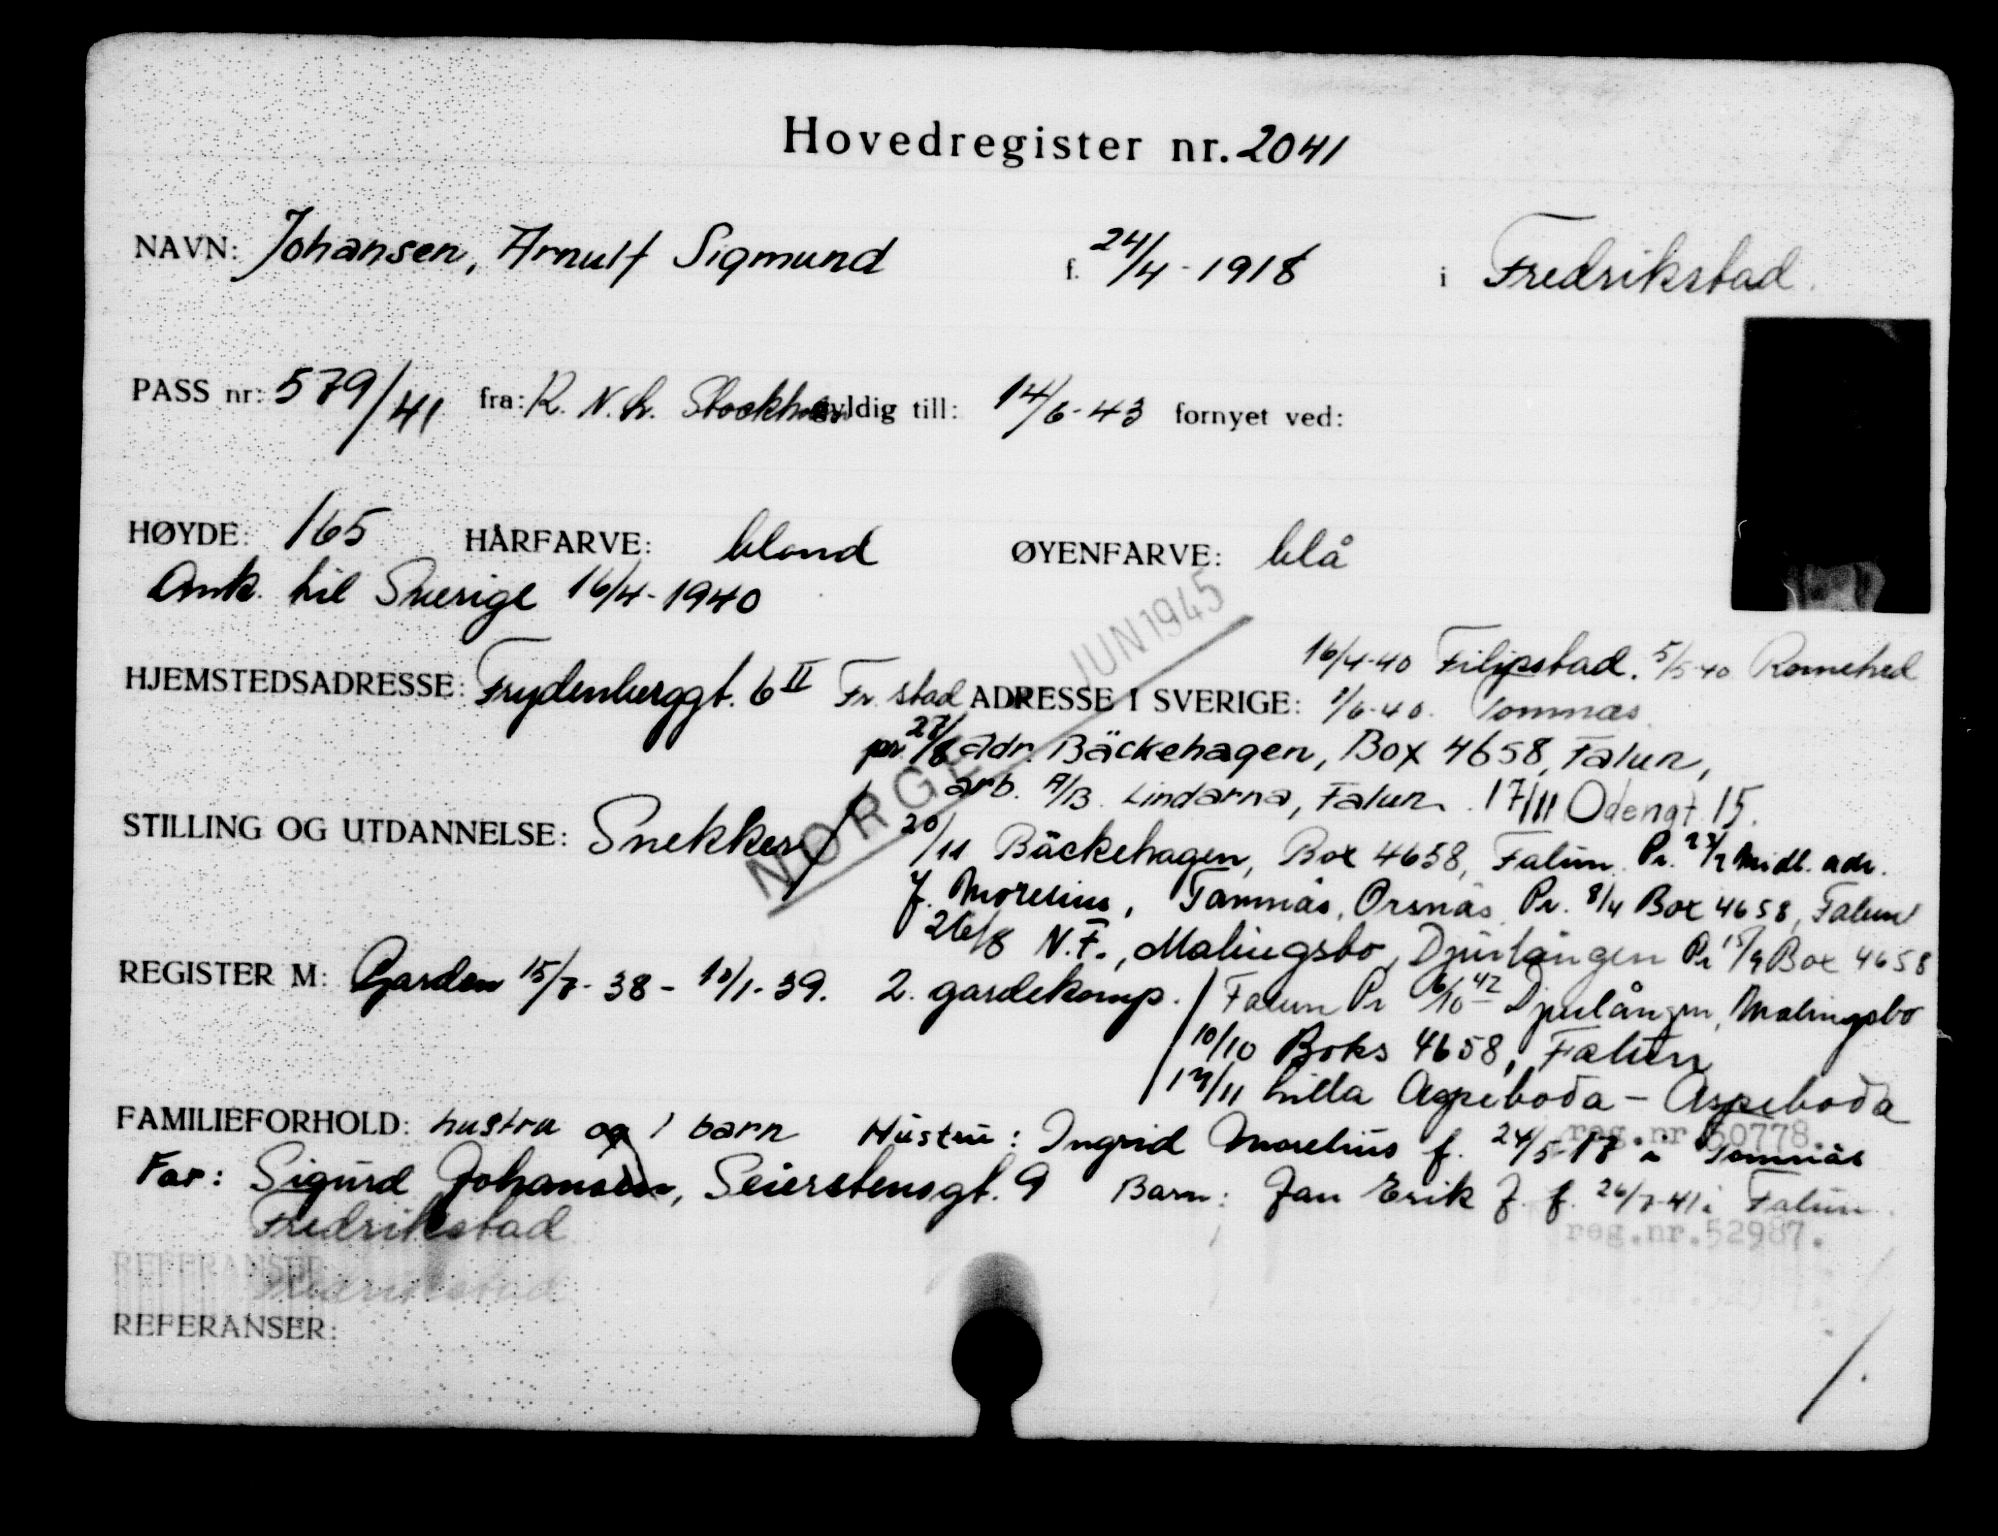 Hovedregister nr. 2041
NAVN: Johansen, Arnulf Sigmund f. 24/4 - 1918 i Fredrikstad.
PASS nr: 579/41 fra: R. N. L. Stockholm gyldig till: 14/6-43 fornyet ved:
HØYDE: 165 HÅRFARVE: blond ØYENFARVE: blå
Ank. til Sverige 16/4-1940
JUN 1945
16/4-40 Filipstad. 5/5-40 Romehed
HJEMSTEDSADRESSE: Frydenberggt. 6 II Fr.stad ADRESSE I SVERIGE: 1/6-40. Tomnäs
pr. 28/8 Adr. Bäckehagen, Box 4658, Falun,
arb. A/B. Lindarna, Falun. 17/11 Odengt 15.
NORGE
STILLING OG UTDANNELSE: Snekker
20/11 Bäckehagen, Box 4658, Falun. Pr. Midl. adr.
J. Morelius, Tamnäs, Ornäs Pr. 8/4 Box 4658, Falun
26/8 N.F., Malingsbo, Djurlången Pr 15/9 Box 4658
REGISTER M: Garden 15/7-38 - 10/1-39. 2. gardekomp. / Falun Pr 6/10 42 Djurlången, Malingsbo
10/10 Boks 4658, Falun
Lilla Aspeboda - Aspeboda
FAMILIEFORHOLD: hustru og 1 barn Hustru: Ingrid Morelius f. 24/5-17 i Tomnäs
reg.nr 50778.
Far: Sigurd Johansen, Seierstensgt. 9 Barn: Jan Erik J. f. 26/7-41 i Falun.
Fredrikstad
reg.nr.52987.
REFERANSER: